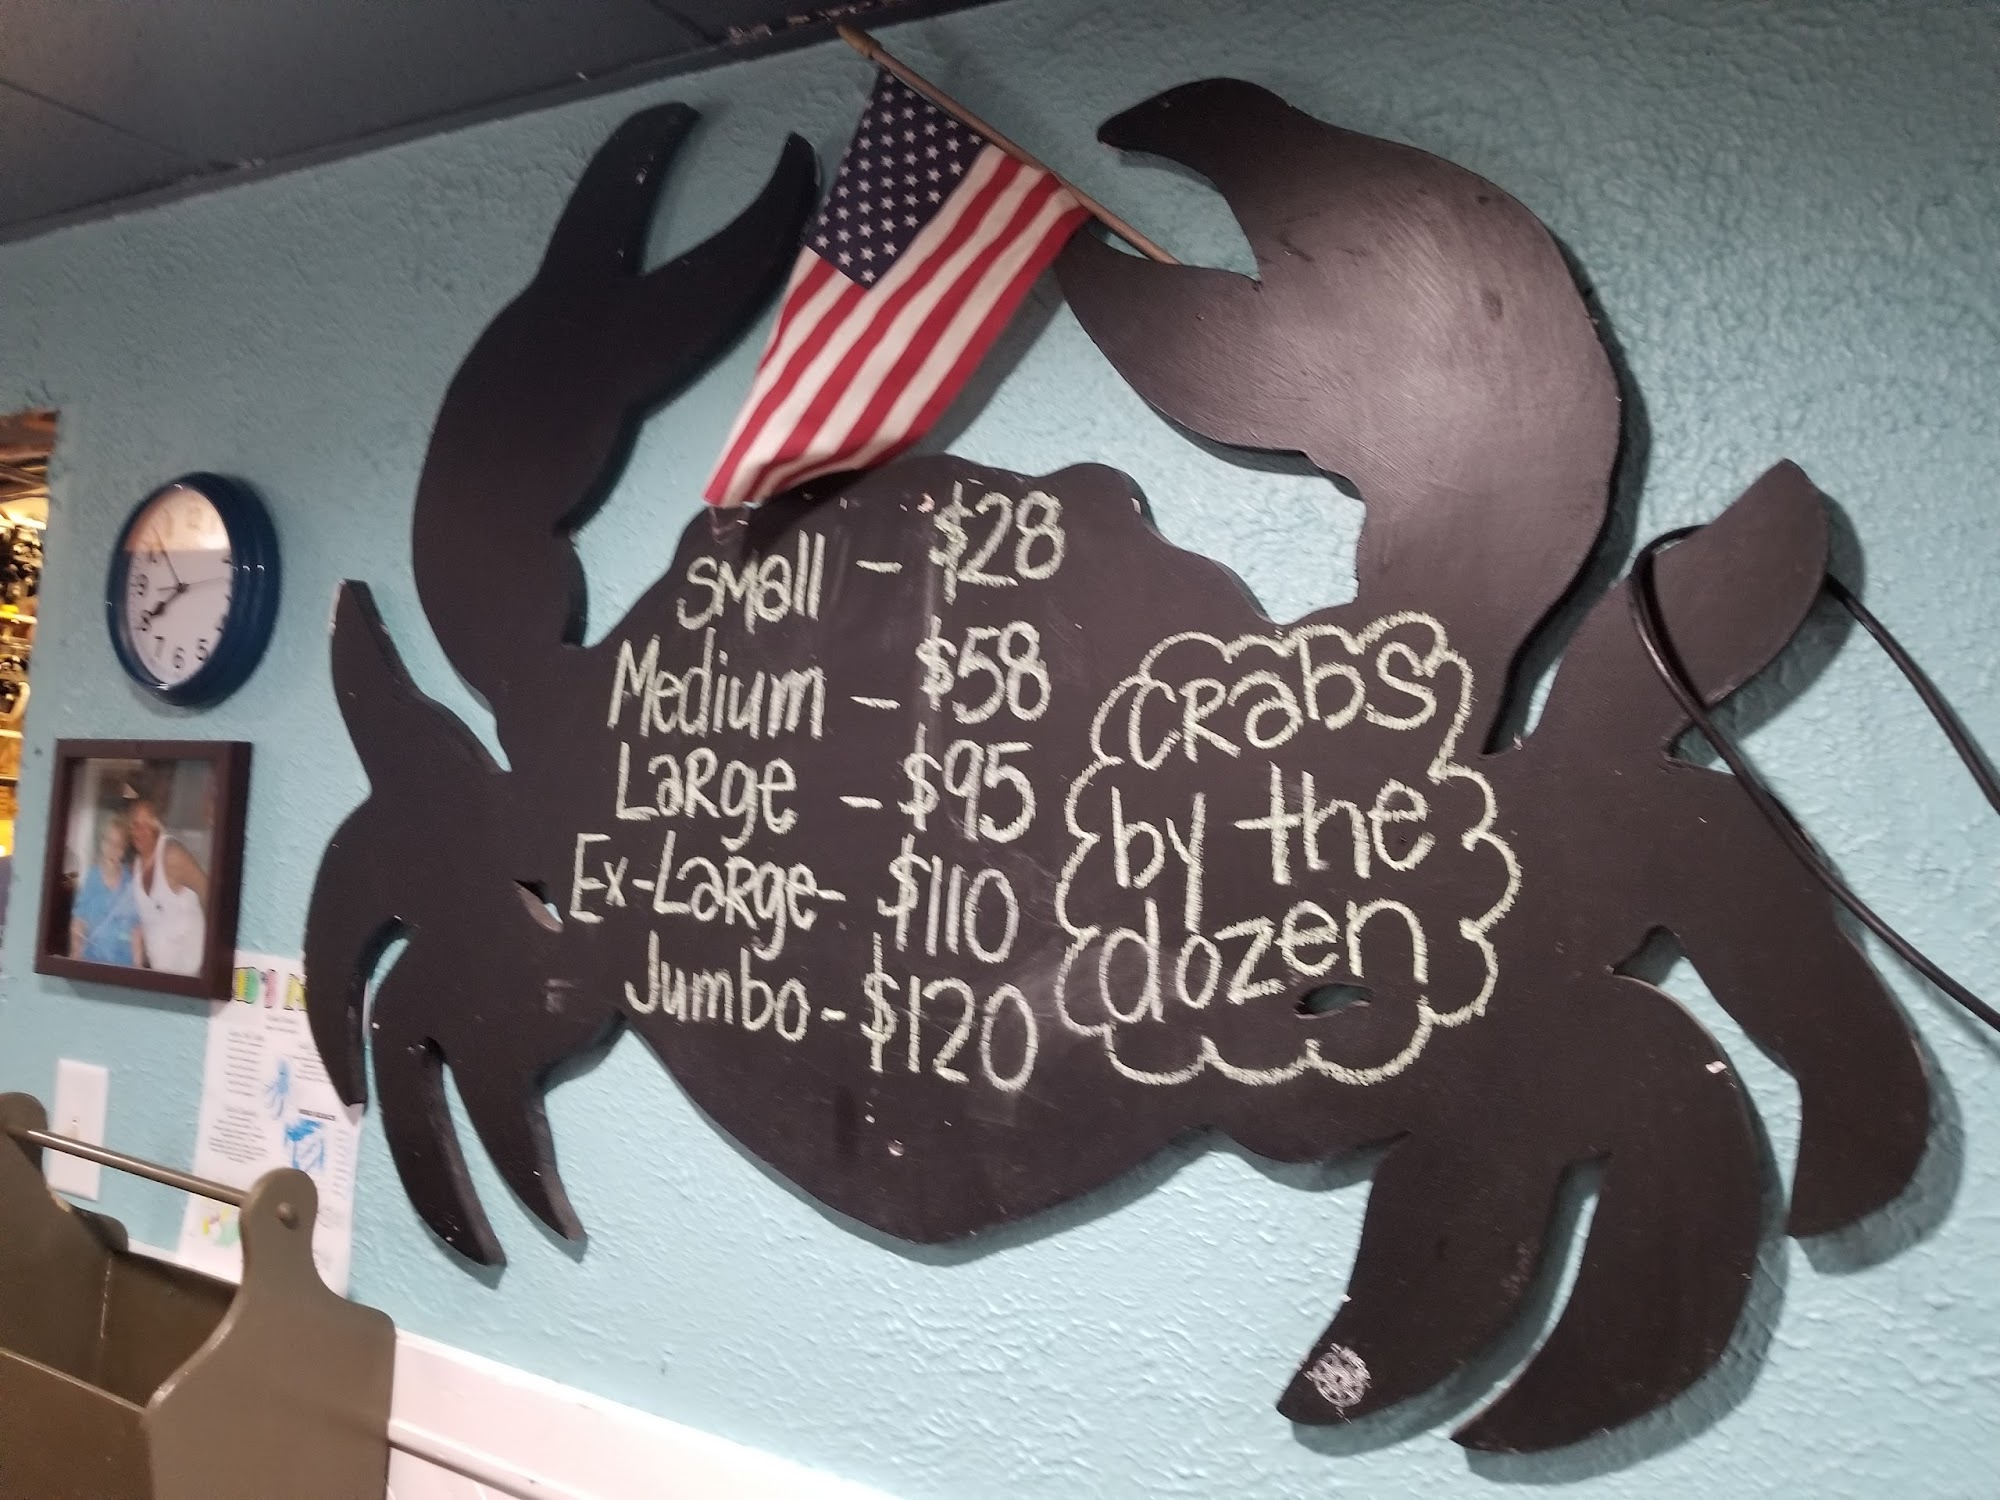 Small - $28
Medium - $58
Large - $95
Ex-Large - $110
Jumbo - $120
Crabs
by the
dozen
9
8
7
6
5